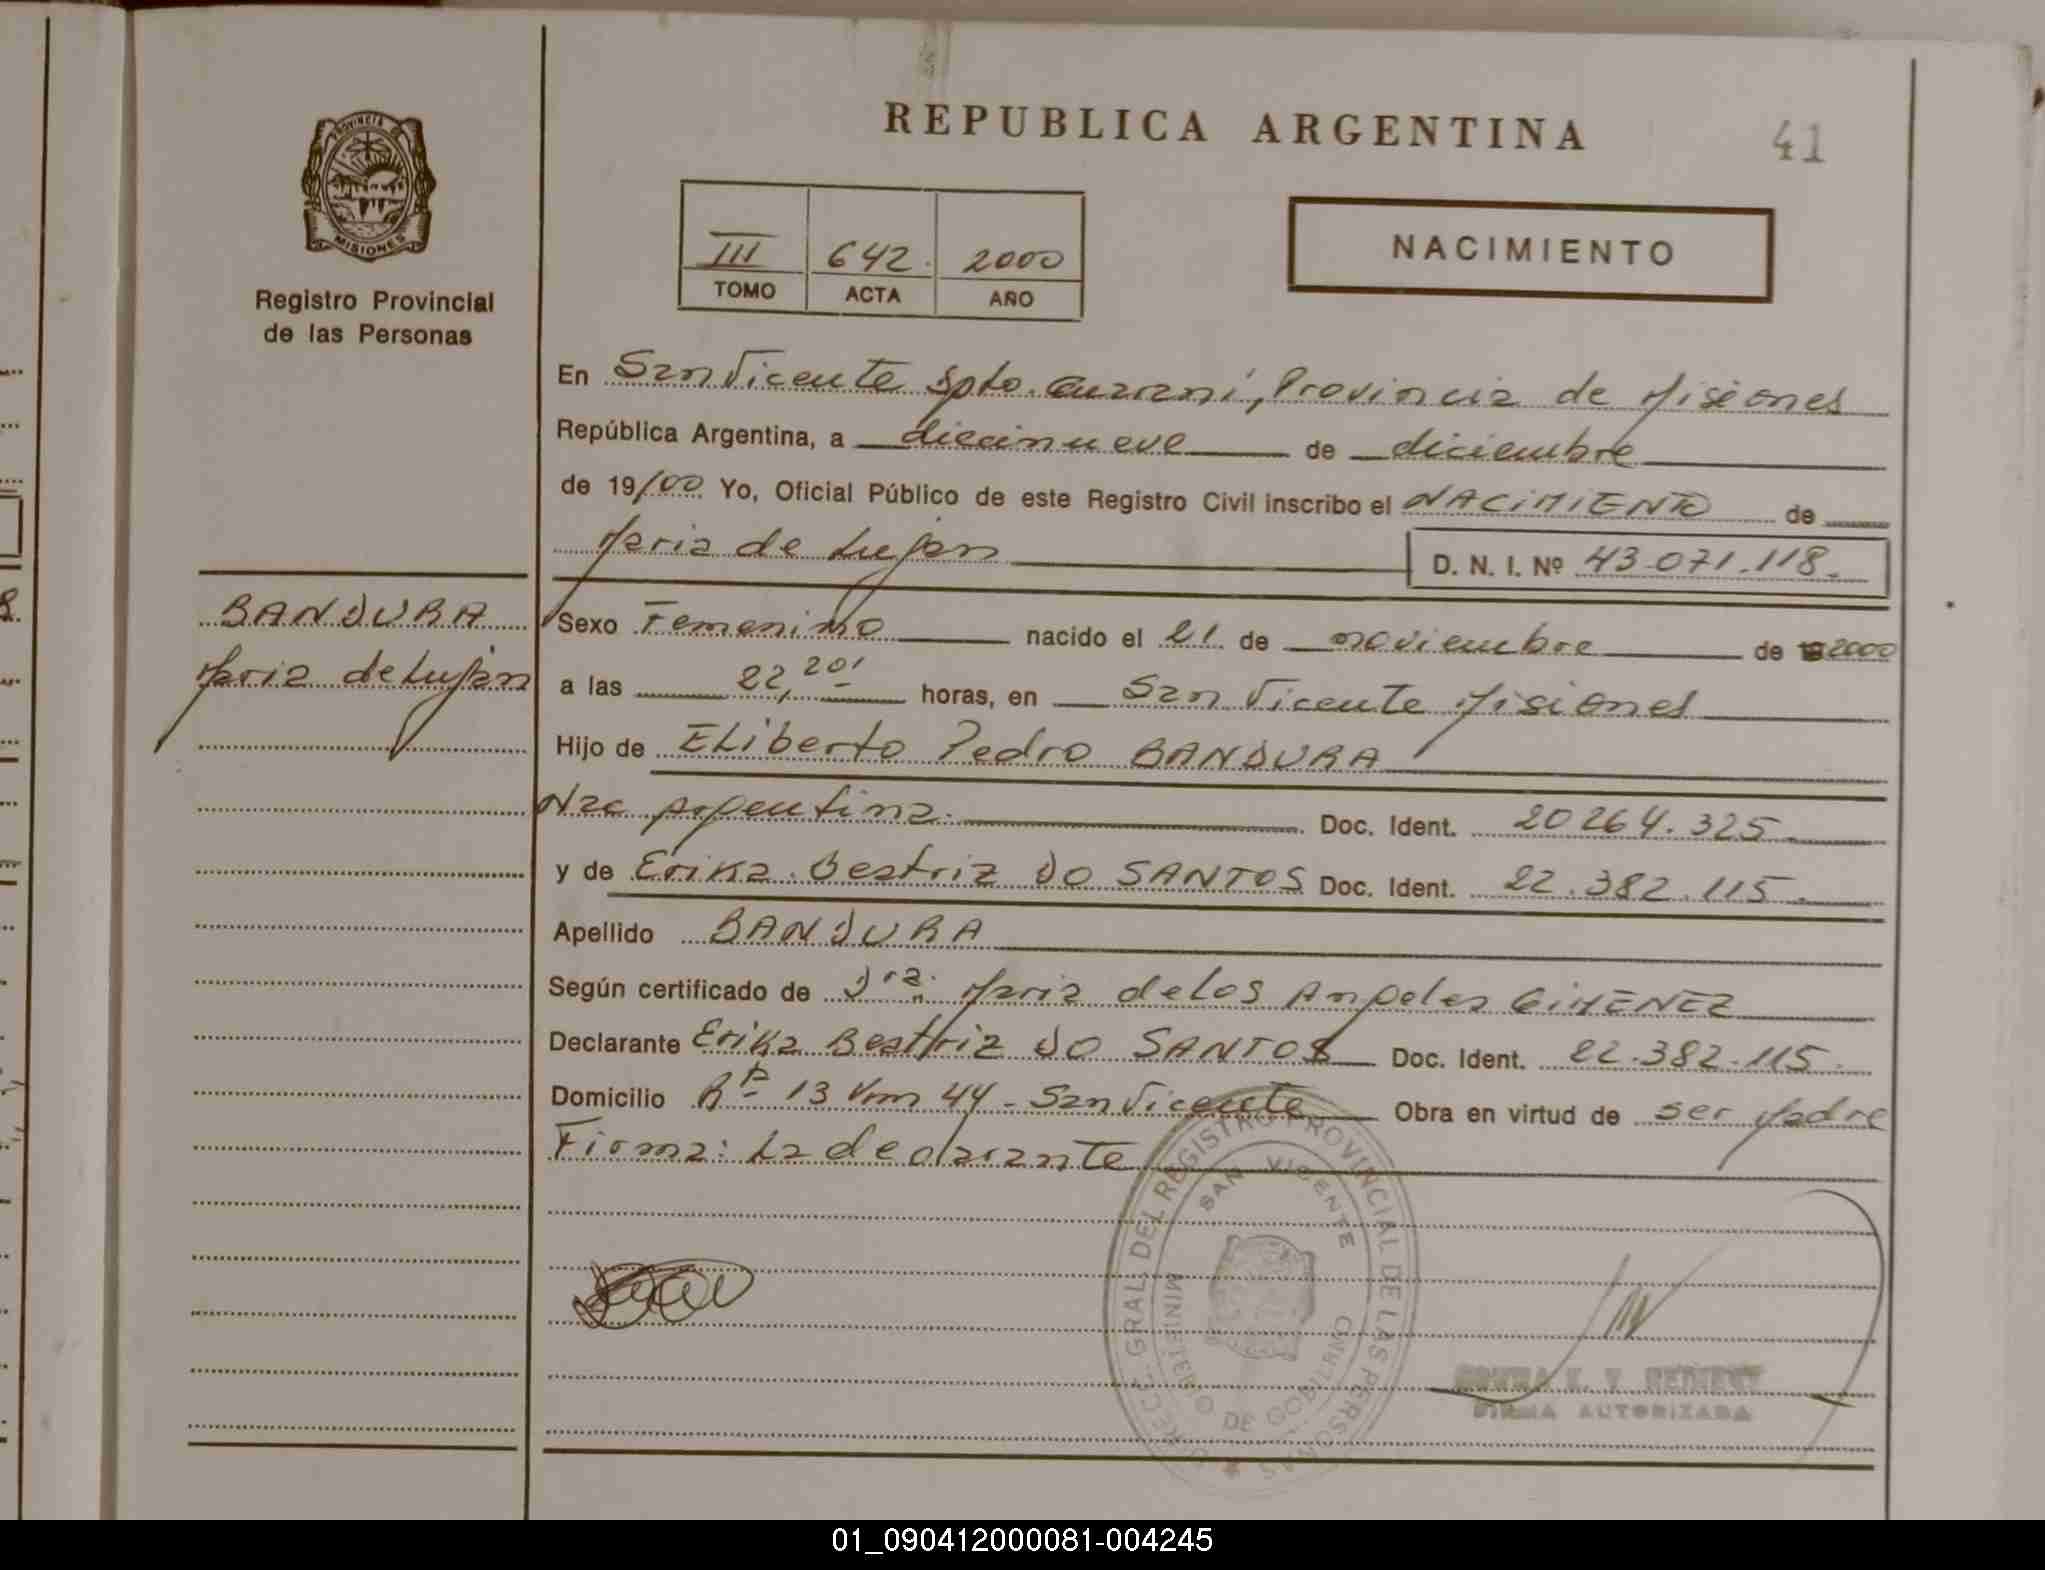 REPUBLICA ARGENTINA
41
PROVINCIA DE
MISIONES
Registro Provincial
de las Personas
III 642. 2000
TOMO ACTA AÑO
NACIMIENTO
En San Vicente Dpto. Guarani, Provincia de Misiones
República Argentina, a diecinueve de diciembre
de 19/00 Yo, Oficial Público de este Registro Civil inscribo el NACIMIENTO de
Maria de Luján D. N. I. Nº 43.071.118.
BANDURA
Maria de Luján
Sexo Femenino nacido el 21 de noviembre de 2000
a las 22,20' horas, en San Vicente Misiones
Hijo de ELiberto Pedro BANDURA
Nac Argentina. Doc. Ident. 20264.325
y de Erika Beatriz DO SANTOS Doc. Ident. 22.382.115.
Apellido BANDURA
Según certificado de Dra. Maria de Los Angeles GIMENEZ
Declarante Erika Beatriz DO SANTOS Doc. Ident. 22.382.115.
Domicilio Rta 13 Km 44 - San Vicente Obra en virtud de ser Madre
Firma: La declarante
DIRECC. GRAL. DEL REGISTRO PROVINCIAL DE LAS PERSONAS
SAN VICENTE
MINISTERIO DE GOBIERNO
FIRMA AUTORIZADA
01_090412000081-004245